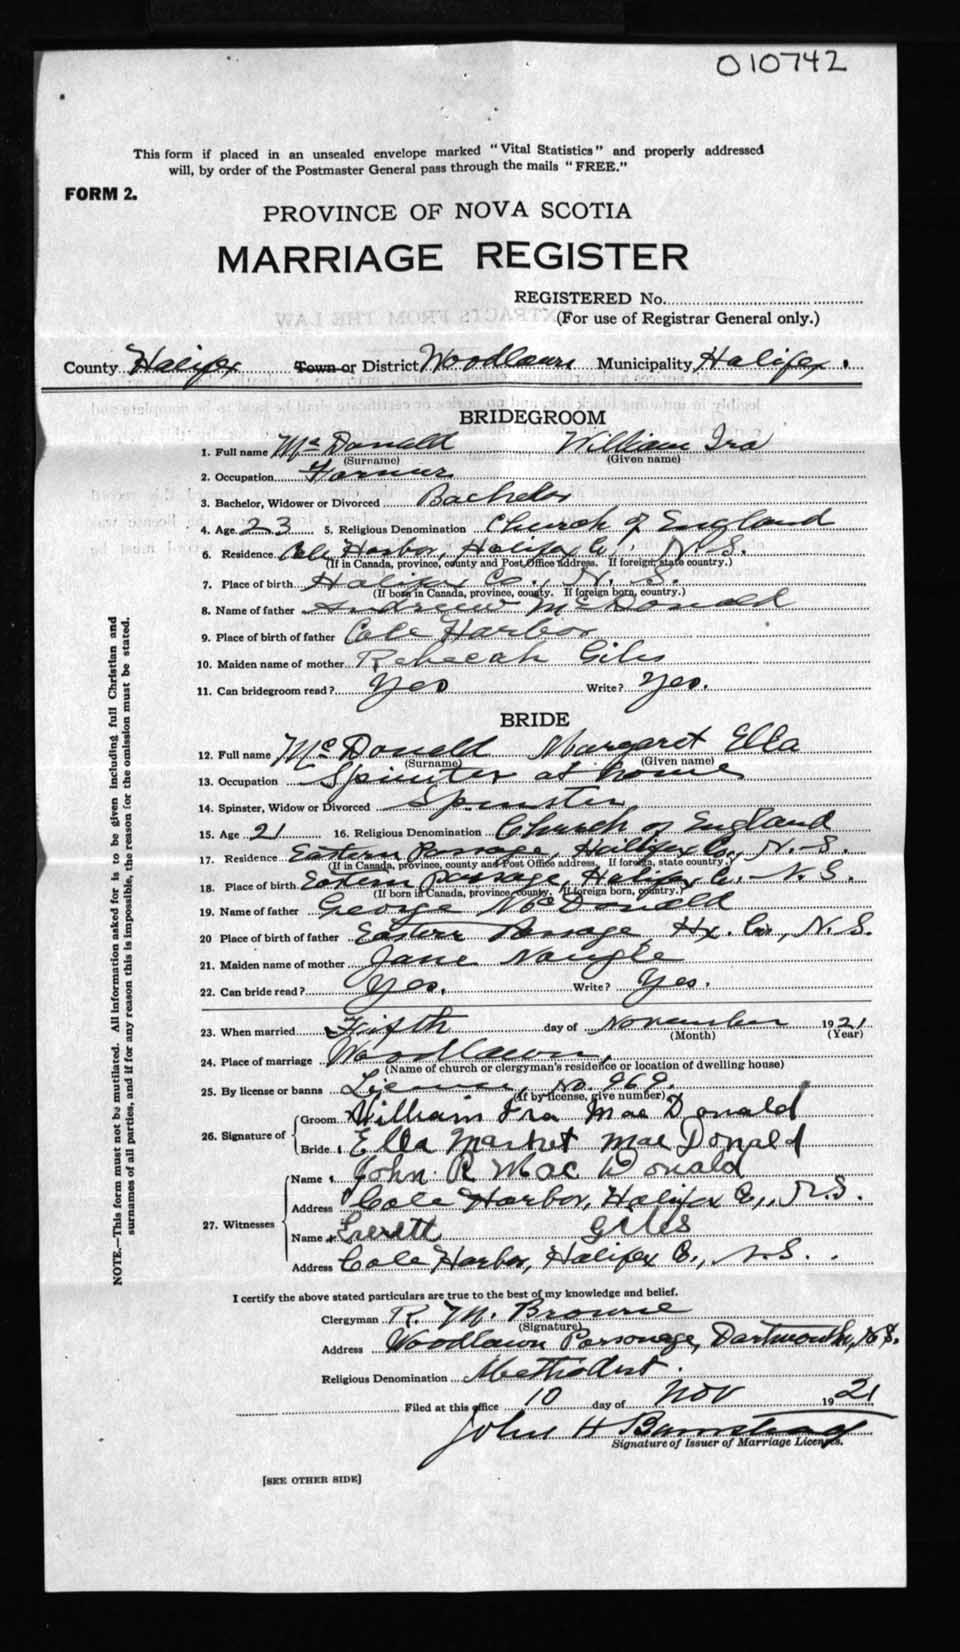 010742
This form if placed in an unsealed envelope marked "Vital Statistics" and properly addressed
will, by order of the Postmaster General pass through the mails "FREE."
FORM 2.
PROVINCE OF NOVA SCOTIA
MARRIAGE REGISTER
REGISTERED No.
(For use of Registrar General only.)
County Halifax Town or District Woodlawn Municipality Halifax.
BRIDEGROOM
1. Full name McDonald William Ira
(Surname) (Given name)
2. Occupation Farmer
3. Bachelor, Widower or Divorced Bachelor
4. Age 23 5. Religious Denomination Church of England
6. Residence Cole Harbor, Halifax Co. N.S.
(If in Canada, province, county and Post Office address. If foreign, state country.)
7. Place of birth Halifax Co., N.S.
(If born in Canada, province, county. If foreign born, country.)
8. Name of father Andrew McDonald
9. Place of birth of father Cole Harbor
10. Maiden name of mother Rebecah Giles
11. Can bridegroom read? Yes Write? Yes.
BRIDE
12. Full name McDonald Margaret Ella
(Surname) (Given name)
13. Occupation Spinster at home
14. Spinster, Widow or Divorced Spinster
15. Age 21 16. Religious Denomination Church of England
17. Residence Eastern Passage, Halifax Co., N.S.
(If in Canada, province, county and Post Office address. If foreign, state country.)
18. Place of birth Eastern Passage, Halifax Co. N.S.
(If born in Canada, province, county. If foreign born, country.)
19. Name of father George McDonald
20 Place of birth of father Eastern Passage, Hx. Co., N.S.
21. Maiden name of mother Jane Naugle
22. Can bride read? Yes. Write? Yes.
23. When married Fifth day of November 1921
(Month) (Year)
24. Place of marriage Woodlawn,
(Name of church or clergyman's residence or location of dwelling house)
25. By license or banns License, No. 969.
(If by license, give number)
26. Signature of Groom William Ira MacDonald
Bride Ella Marhret MacDonald
27. Witnesses Name John R MacDonald
Address Cole Harbor, Halifax Co., N.S.
Name Everett Giles
Address Cole Harbor, Halifax Co., N.S.
I certify the above stated particulars are true to the best of my knowledge and belief.
Clergyman R. M. Browne
(Signature)
Address Woodlawn Parsonage, Dartmouth, N.S.
Religious Denomination Methodist.
Filed at this office 10 day of Nov 1921
John H Barnstead
Signature of Issuer of Marriage Licenses.
[SEE OTHER SIDE]
NOTE.—This form must not be mutilated. All information asked for is to be given including full Christian and
surnames of all parties, and if for any reason this is impossible, the reason for the omission must be stated.